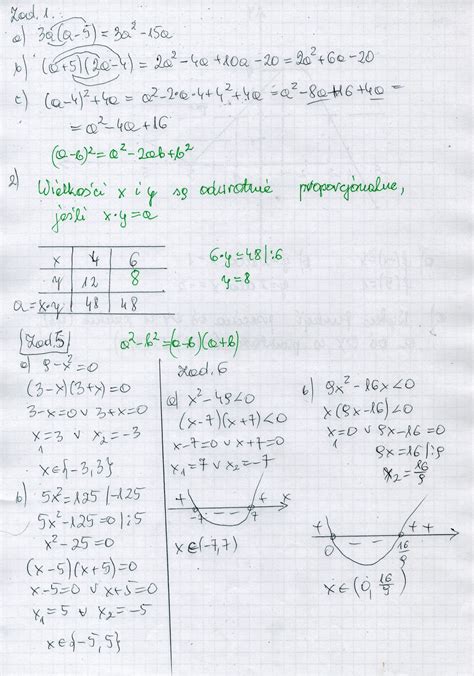 Zad.1.
a) 3a(a-5) = 3a²-15a
b) (a+5)(2a-4) = 2a²-4a+10a-20 = 2a²+6a-20
c) (a-4)²+4a = a²-2·a·4+4²+4a = a²-8a+16+4a =
= a²-4a+16
(a-b)² = a²-2ab+b²
2) Wielkości x i y są odwrotnie proporcjonalne,
jeśli x·y=a
x 4 6
y 12 8
a=x·y 48 48
6·y=48|:6
y=8
Zad.5
a²-b²=(a-b)(a+b)
a) 9-x²=0
(3-x)(3+x)=0
3-x=0 v 3+x=0
x₁=3 v x₂=-3
x∈{-3,3}
b) 5x²=125 |-125
5x²-125=0 |:5
x²-25=0
(x-5)(x+5)=0
x-5=0 v x+5=0
x₁=5 v x₂=-5
x∈{-5,5}
Zad.6
a) x²-49<0
(x-7)(x+7)<0
x-7=0 v x+7=0
x₁=7 v x₂=-7
+ - - - + x
-7 7
x∈(-7,7)
b) 9x²-16x<0
x(9x-16)<0
x₁=0 v 9x-16=0
9x=16|:9
x₂=16/9
+ - - - + +
0 16/9
x∈(0, 16/9)